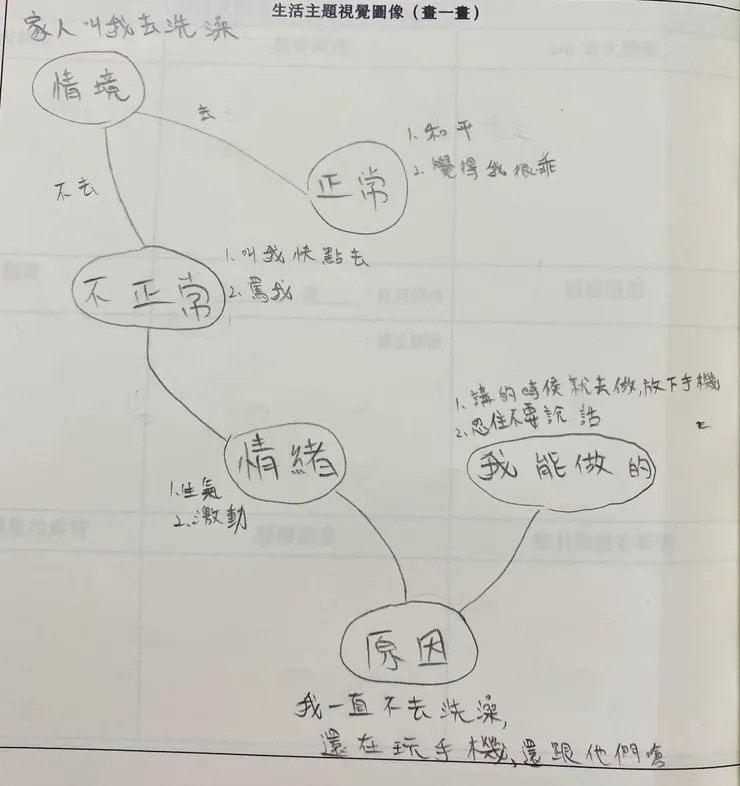 生活主題視覺圖像（畫一畫）
家人叫我去洗澡
情境
去
1. 和平
2. 覺得我很乖
正常
不去
1. 叫我快點去
2. 罵我
不正常
1. 講的時候就去做,放下手機
2. 忍住不要說話
我能做的
情緒
1. 生氣
2. 激動
原因
我一直不去洗澡,
還在玩手機,還跟他們嗆